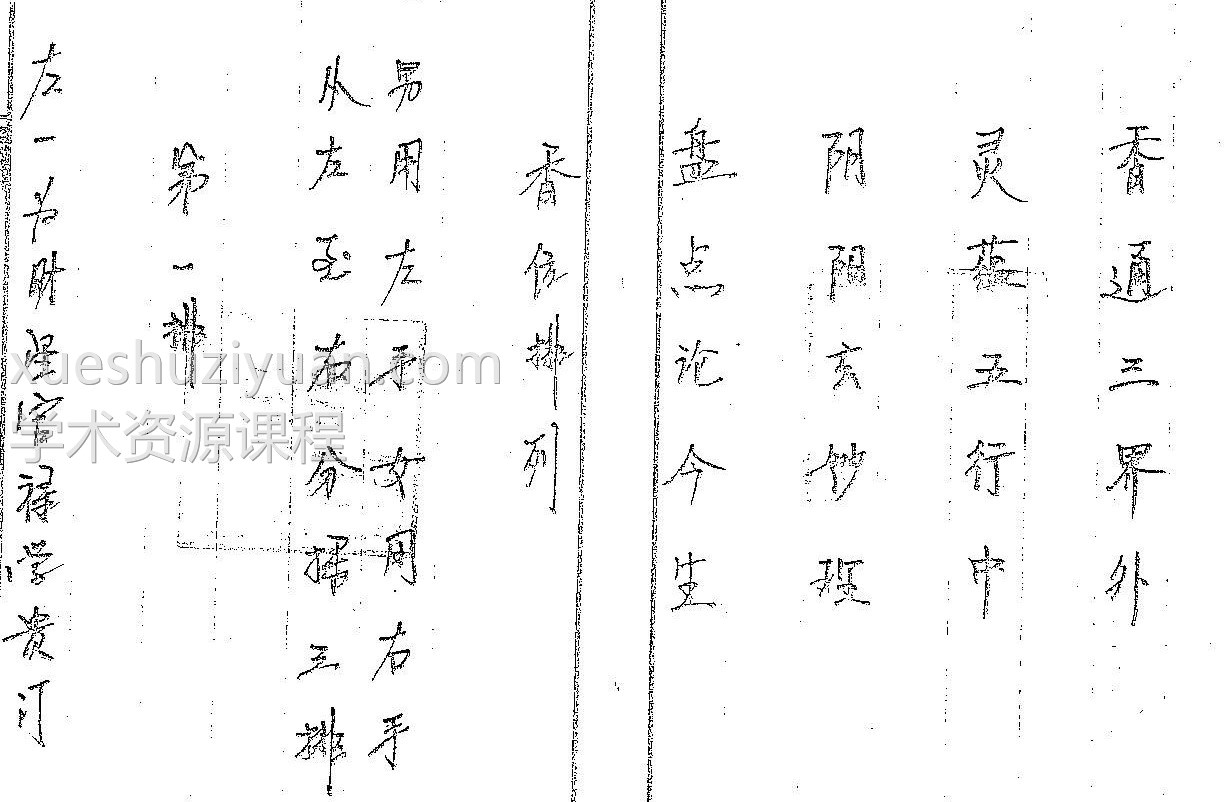 香通三界外
灵蕴五行中
阴阳玄妙现
盘点论今生
香位排列
男用左手女用右手
从左至右分 三排
第一排
左一为财 官禄学贵
xueshuziyuan.com
学术资源课程